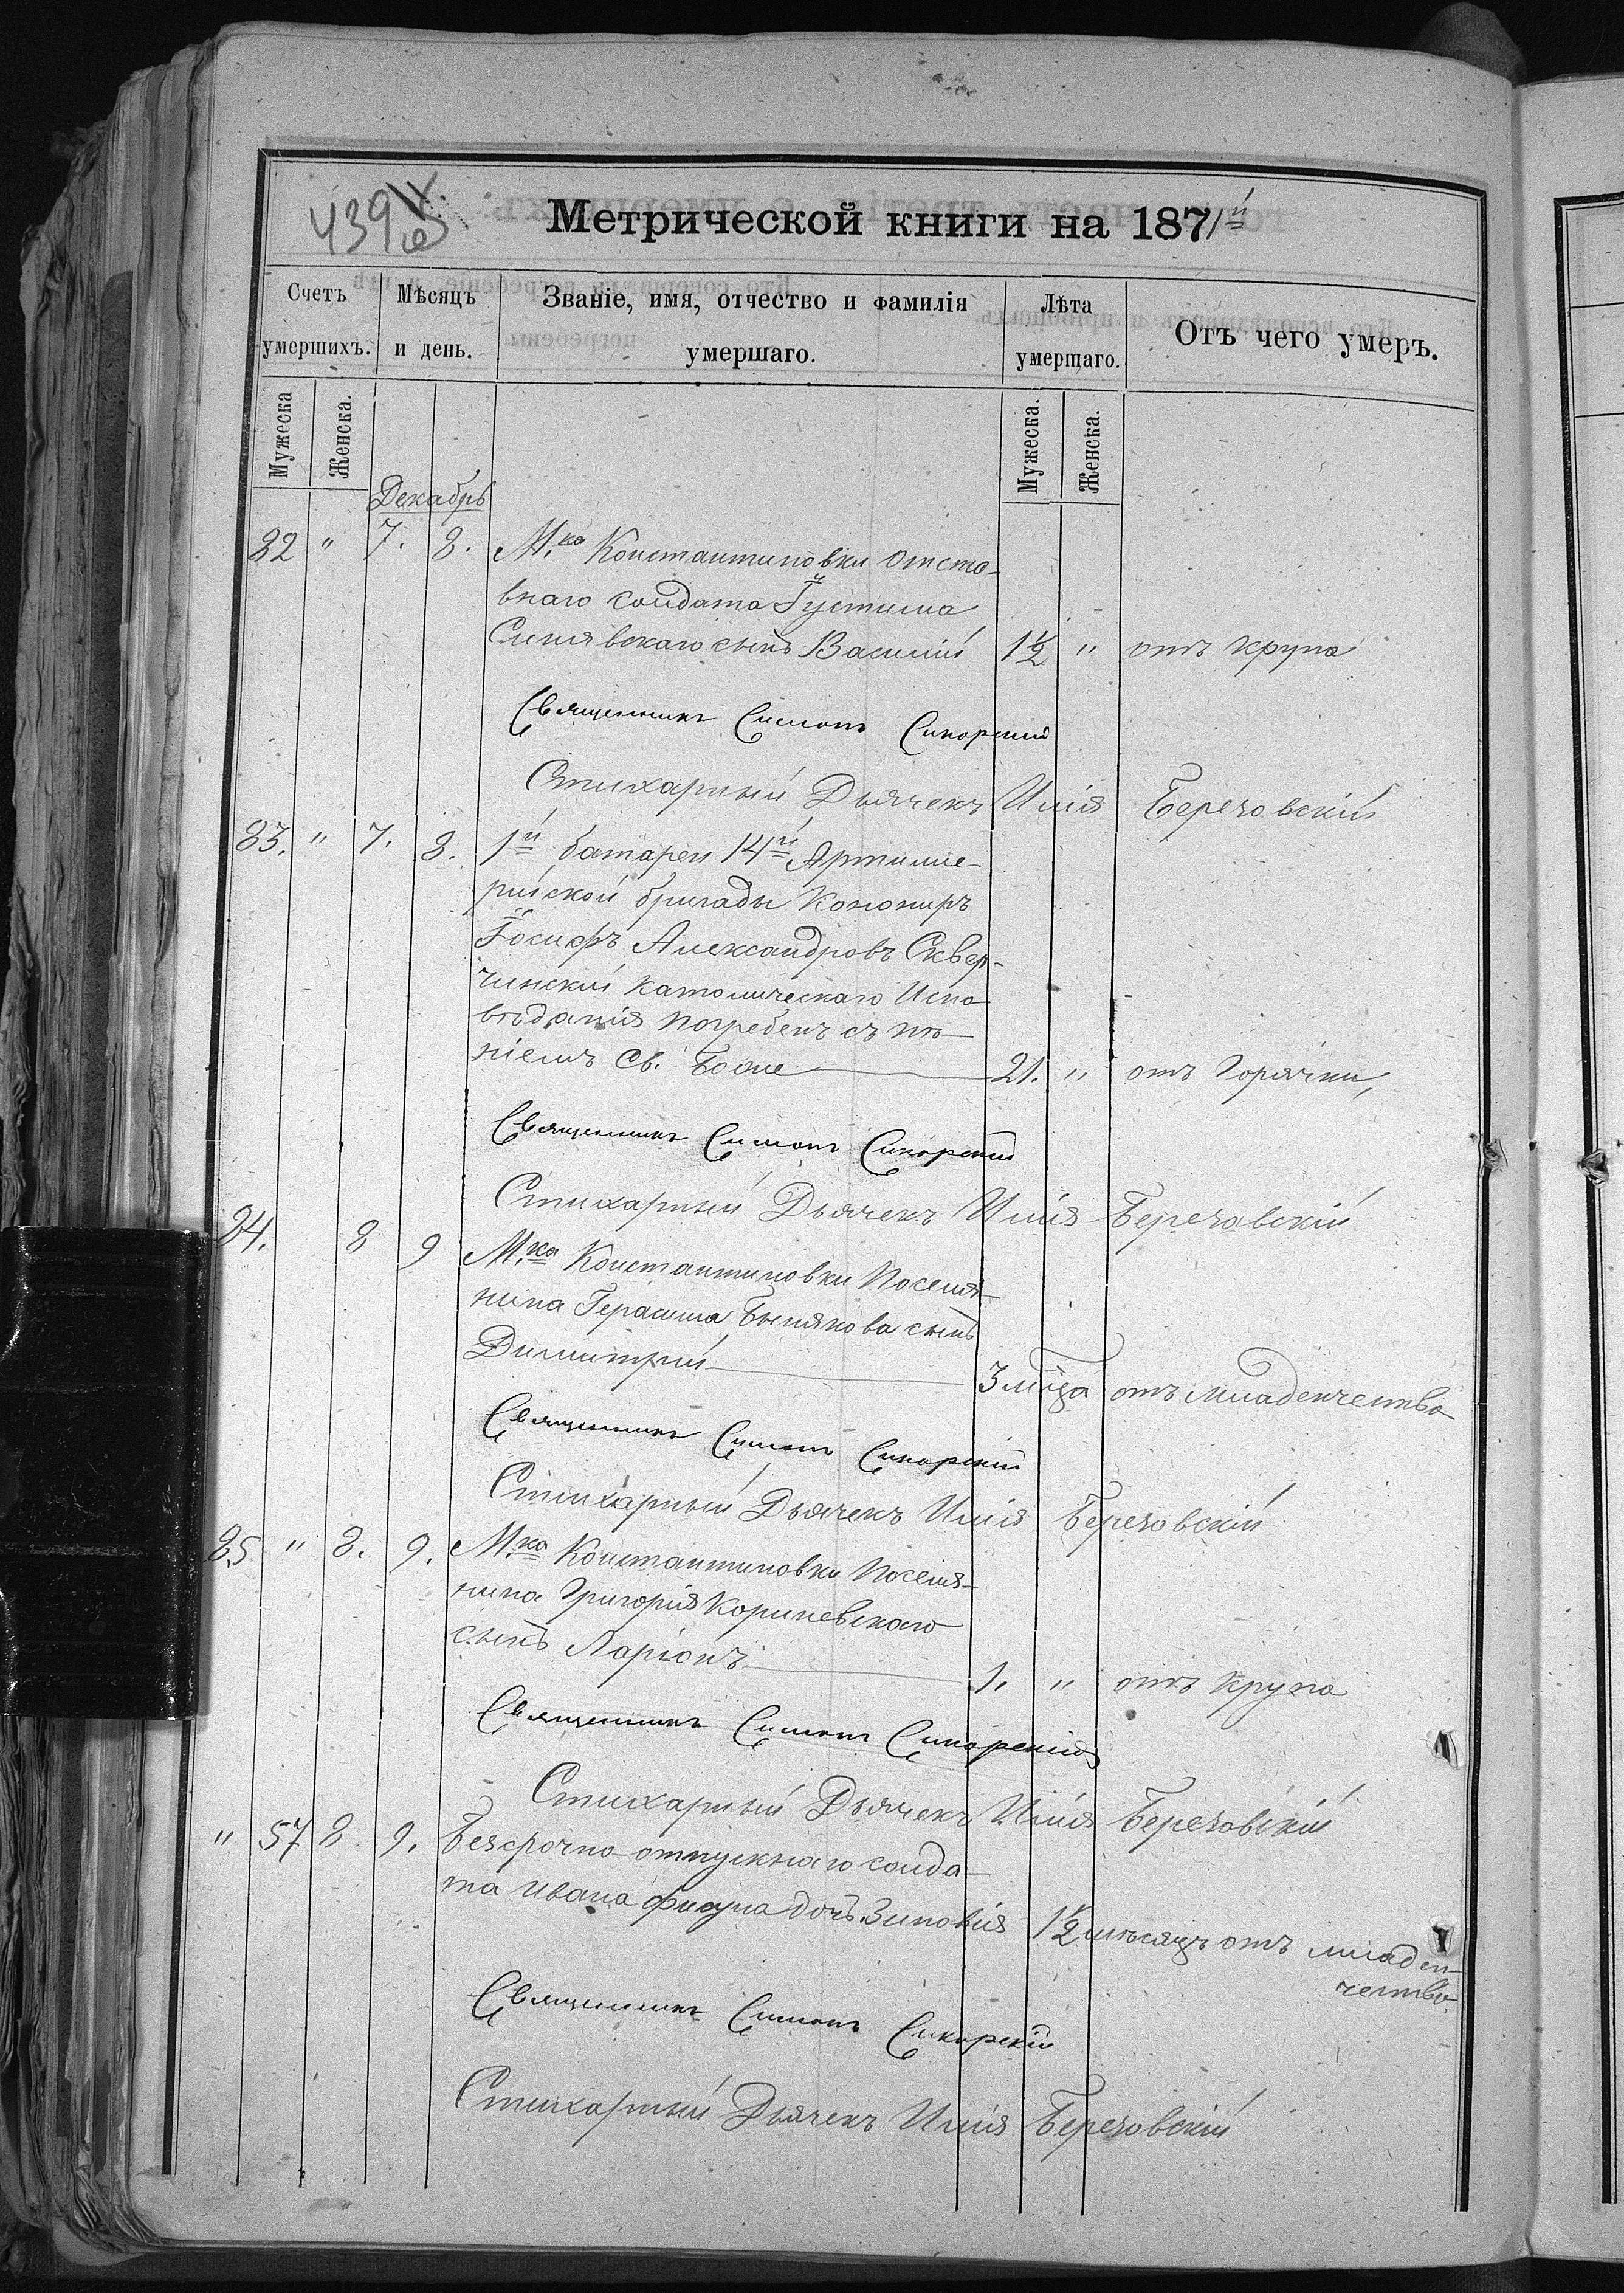 439
Метрической книги на 1871й
Счетъ умершихъ.
Мѣсяцъ и день.
Званіе, имя, отчество и фамилія умершаго.
Лѣта умершаго.
Отъ чего умеръ.
Мужеска
Женска.
Мужеска.
Женска.
Декабрь
82 " 7. 8. М.ка Константиновки отста-
внаго солдата Іустина
Синявскаго сынъ Василій 1½ " отъ крупа
Священникъ Симонъ Сикорский
Стихарный Дьячекъ Илія Березовскій
83. " 7. 8. 1й батареи 14й Артилле-
рийской бригады Канониръ
Іосифъ Александровъ Сквер-
чинский католическаго Испо-
вѣданія погребенъ съ пѣ-
ніемъ Св. Боже 21. " отъ Горячки,
Священникъ Симонъ Сикорский
Стихарный Дьячекъ Илія Березовскій
84. 8 9 М.ка Константиновки Поселя-
нина Герасима сынъ
Димитрий 3 мца отъ младенчества
Священникъ Симонъ Сикорскій
Стихарный Дьячекъ Илія Березовскій
85 " 8. 9. М.ка Константиновки Поселя-
нина Григорія Кориневскаго
сынъ Ларіонъ 1. " отъ крупа
Священникъ Симонъ Сикорский
Стихарный Дьячекъ Илія Березовскій
" 57 8. 9. Безсрочно-отпускнаго солда-
та Ивана Фисуна дочь Зиновія 1½ мѣсяцъ отъ младен-
чества
Священникъ Симонъ Сикорскій
Стихарный Дьячекъ Илія Березовскій